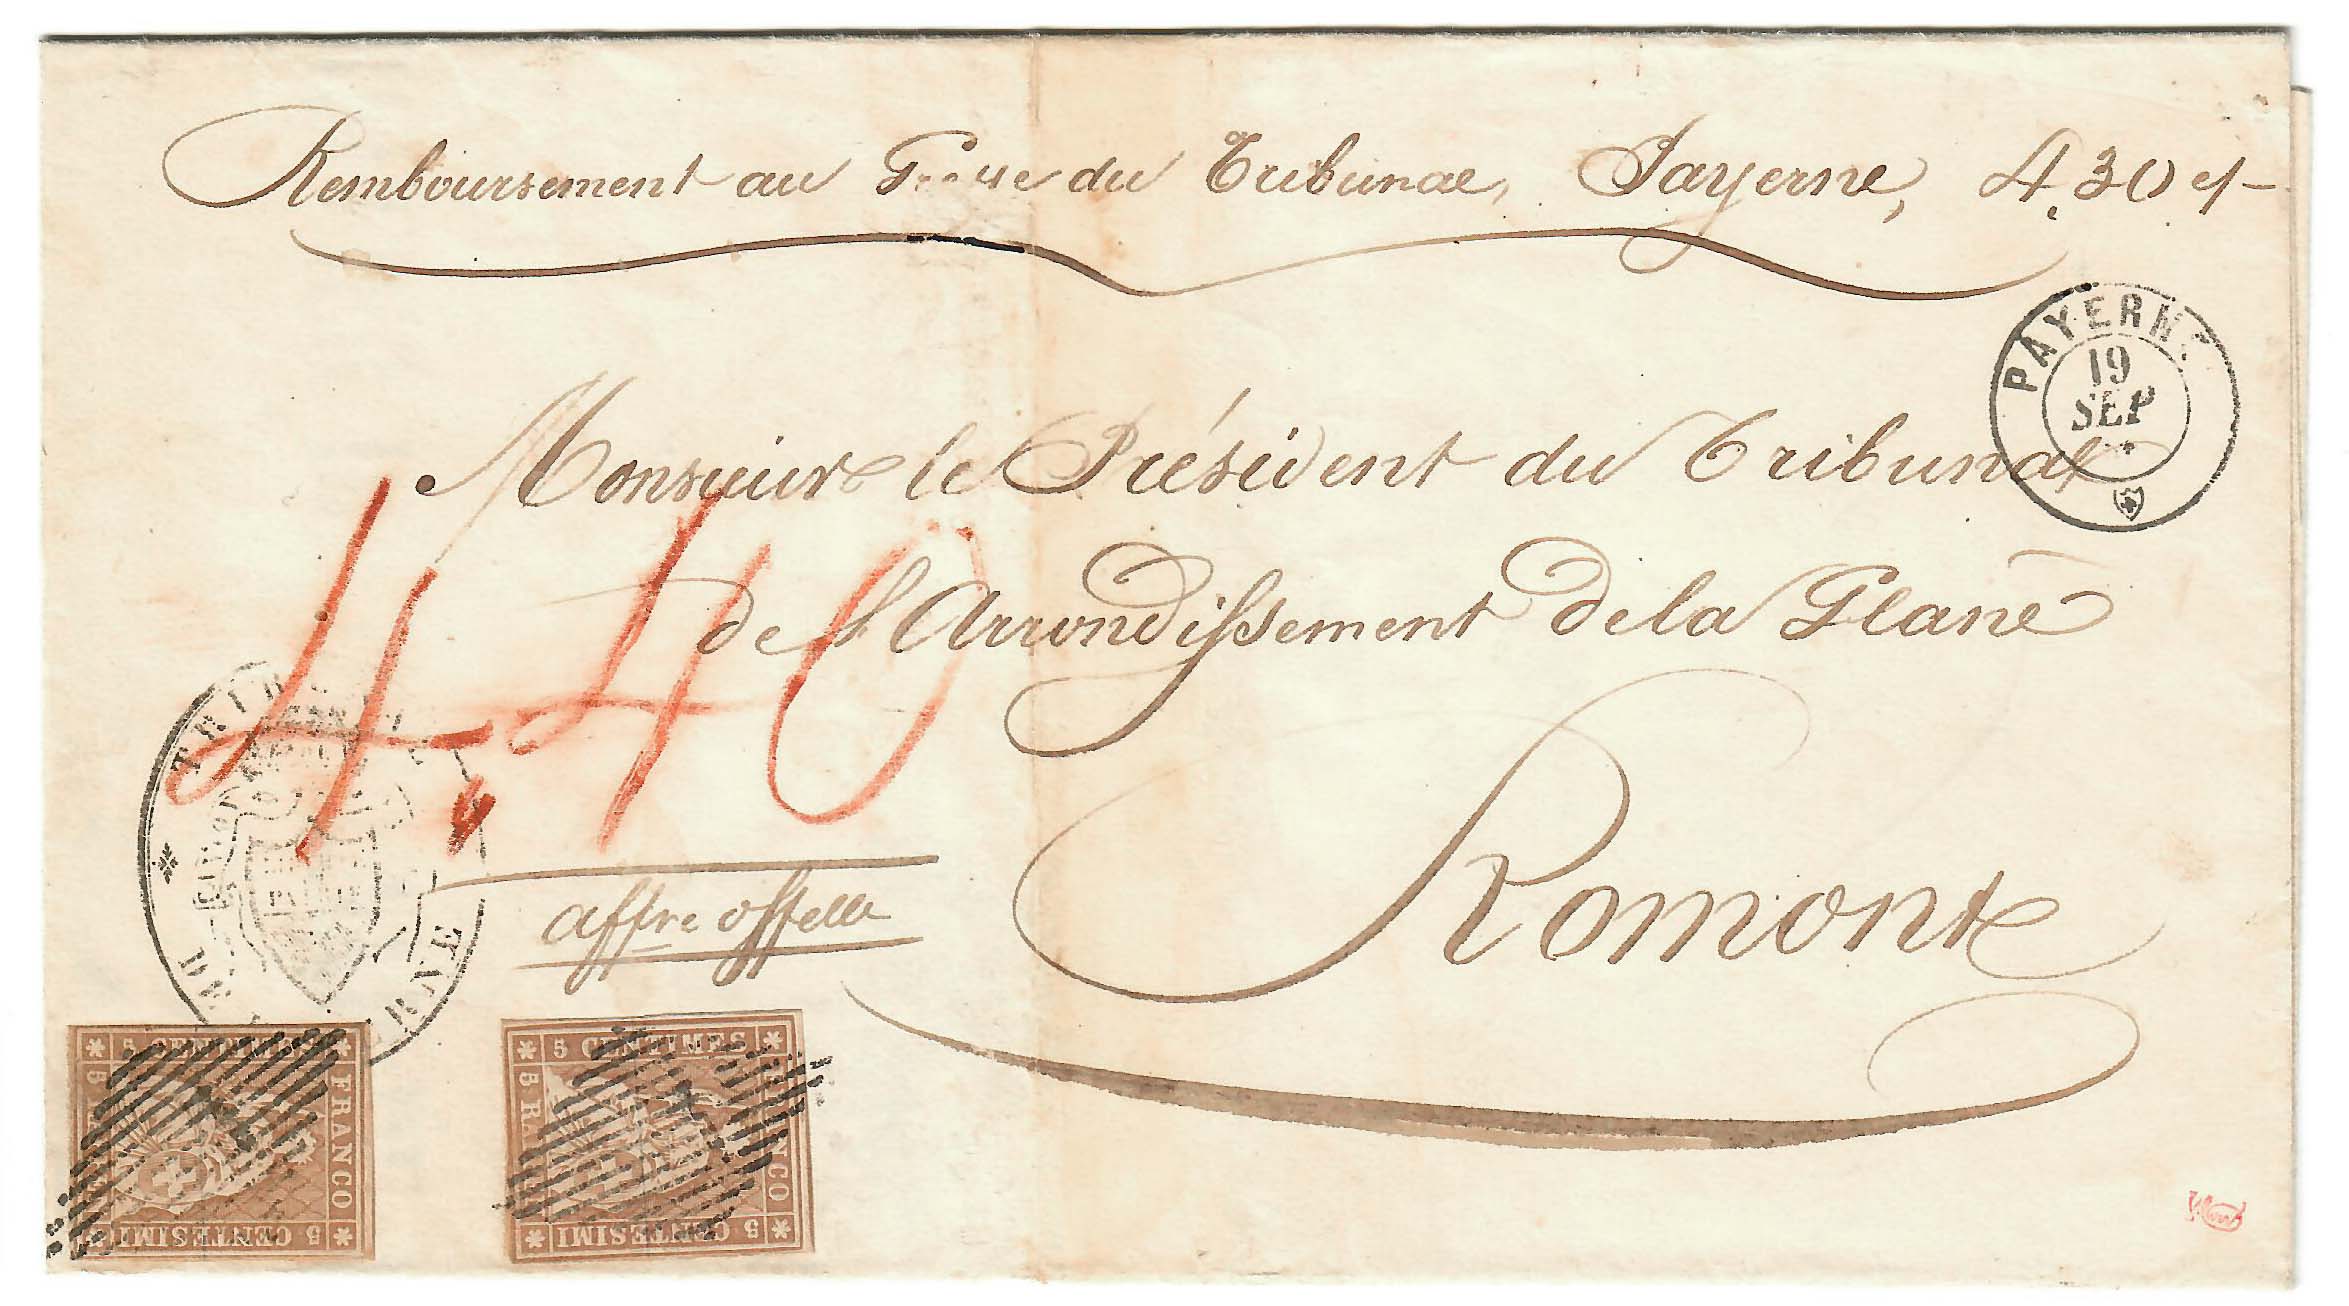 Remboursement au Greffe du Tribunal, Payerne, 4.30 ct
PAYERNE
19
SEP
Monsieur le Président du Tribunal
de l'Arrondissement de la Glane
4.40
Romont
TRIB
DE
RNE
affre offelle
5 CENTIMES
FRANCO
5 CENTESIMI
5 CENTIMES
5 RA
NCO
5 CENTESIMI